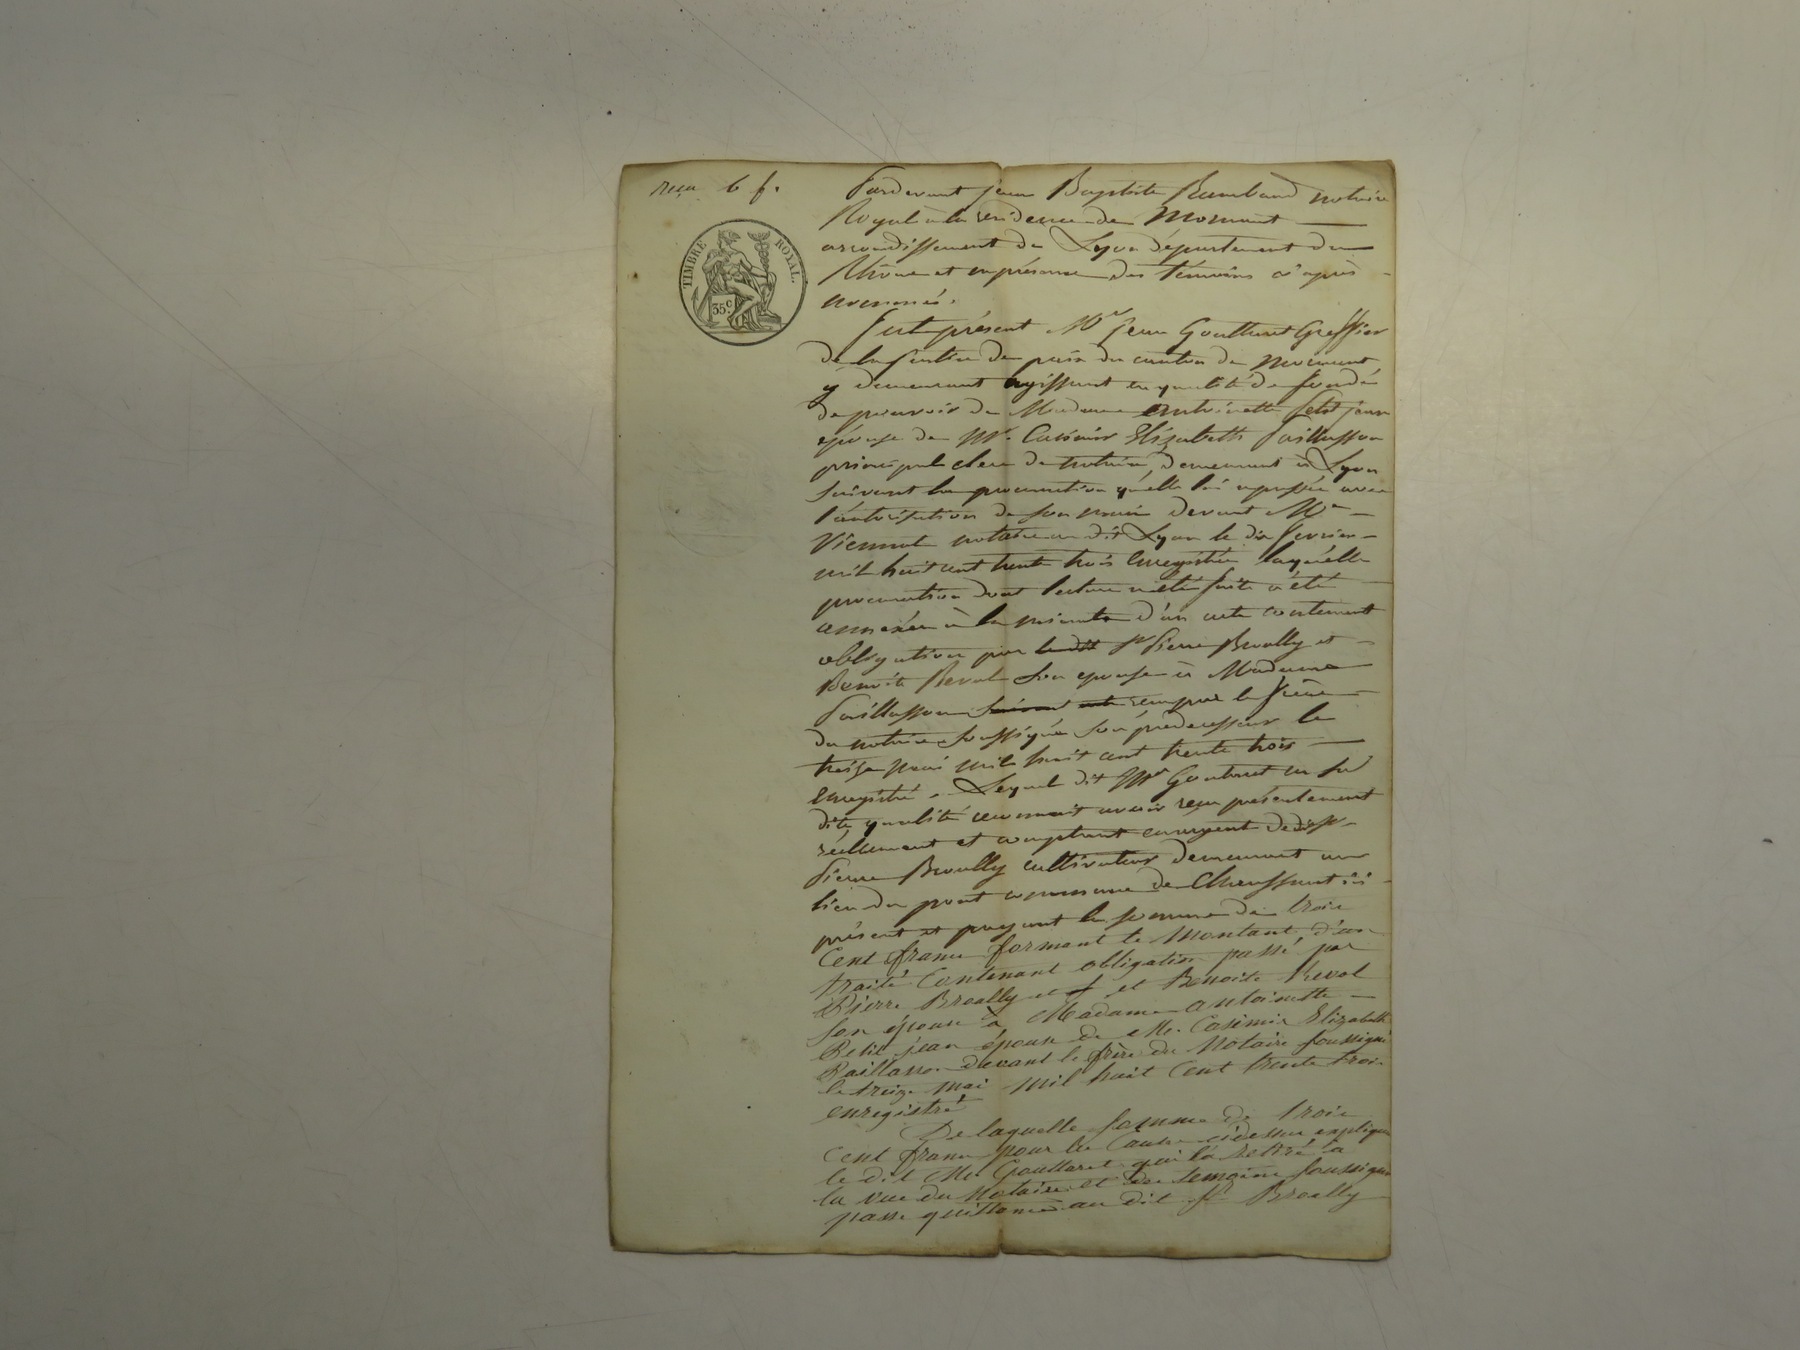 reçu 6 f.
TIMBRE ROYAL.
35c
Pardevant jean Baptiste Rambaud notaire
Royal à la residence de Mornant
arrondissement de Lyon département du
Rhône et en présence des témoins ci après
nommés.
fut présent Mr jean Goutturet Greffier
de la justice de paix du canton de Mornant
y demeurant agissant en qualité de fondé
de pouvoir de Madame antoinette Petit jean
épouse de Mr. Casimir Elizabeth Paillasson
principal clerc de notaire, demeurant à Lyon
suivant la procuration qu'elle lui a passée avec
l'autorisation de son mari devant Me
Viennot notaire au dit Lyon le dix fevrier
mil huit cent trente trois Enregistrée laquelle
procuration dont lecture a été faite a été
annexée à la minute d'un acte contenant
obligation par le dit Sr Pierre Broally et
Benoite Revol son epouse à Madame
Paillasson suivant acte reçu par le frère
du notaire soussigné son prédecesseur le
treize mai mil huit cent trente trois
Enregistré. Lequel dit Mr Goutturet en sa
dite qualité reconnait avoir reçu présentement
réellement et comptant en argent de
Pierre Broally cultivateur demeurant au
lieu du pont commune de Chaussant ici
présent et payant la somme de trois
Cent franc formant le Montant d'un
traité Contenant obligation passé par
Pierre Broally et et Benoite Revol
son épouse à Madame antoinette
Petit jean épouse de Mr. Casimir Elizabeth
Paillasson devant le frère du Notaire soussigné
le treize mai mil huit Cent trente trois
enregistré
De laquelle somme de trois
Cent franc pour la Cause cidessus expliquée
le dit Mr Goutturet qui la retiré à
la vue du Notaire et des temoins soussignés
passe quittance au dit Sr Broally